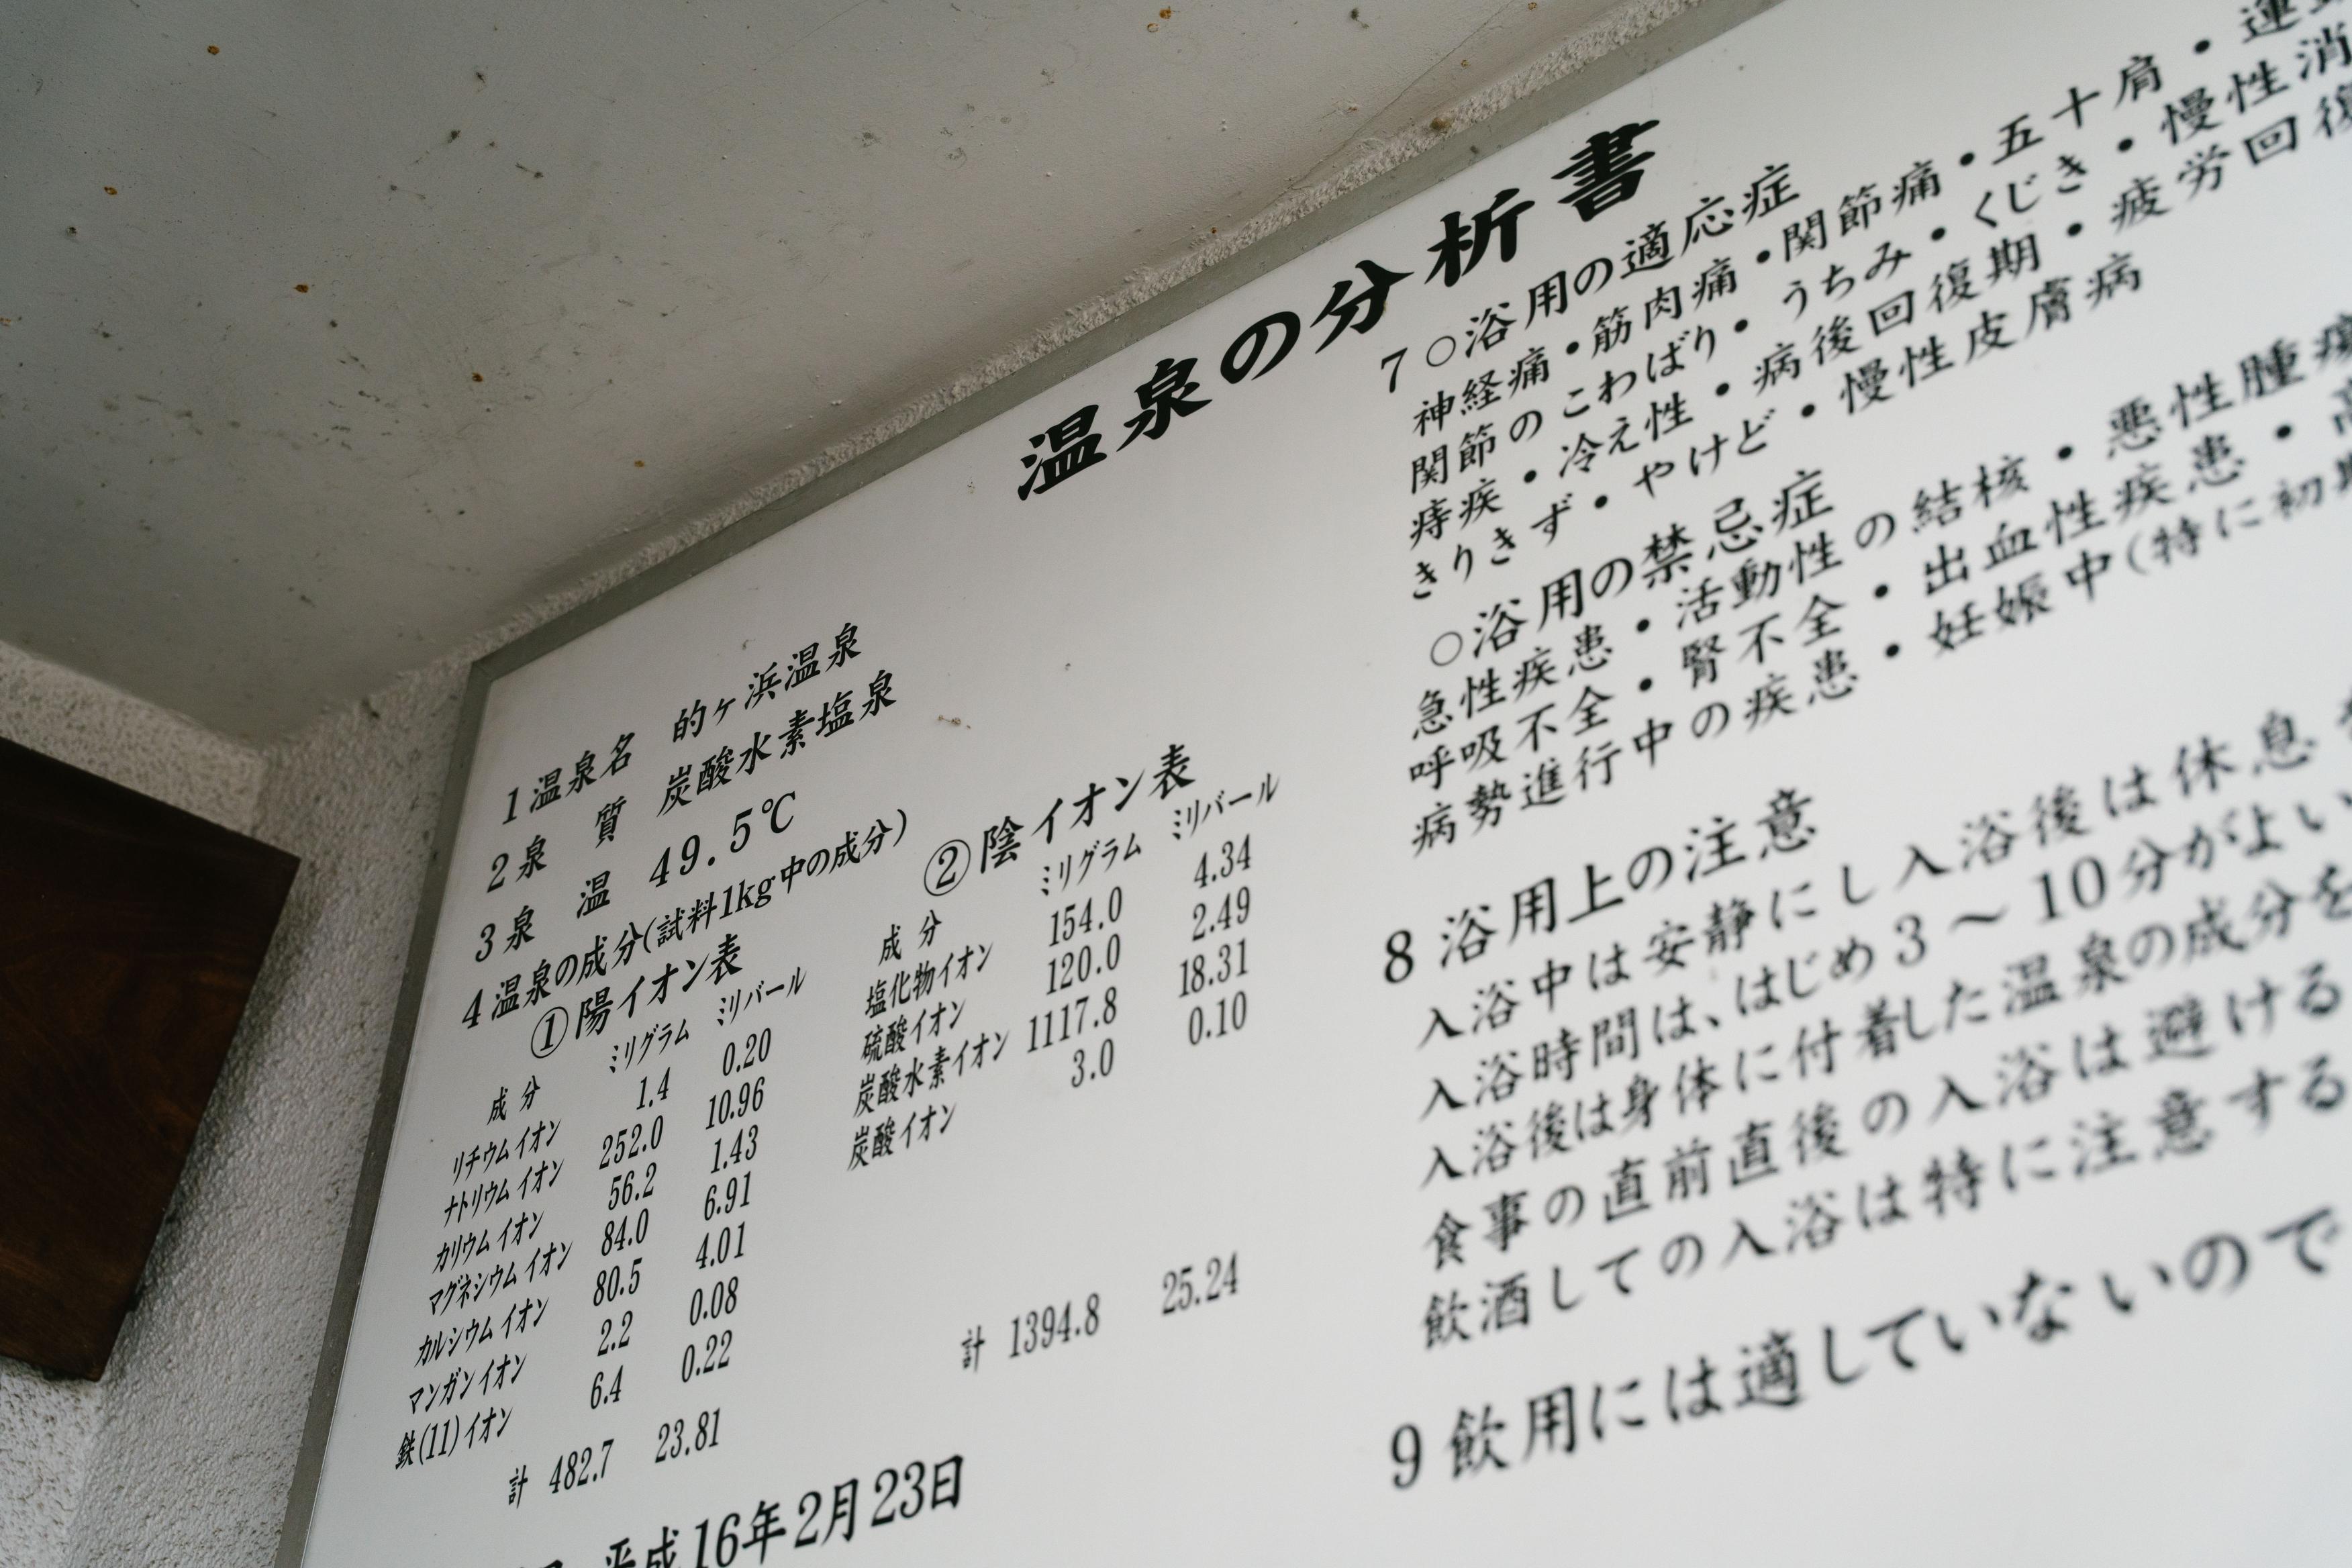 温泉の分析書
1 温泉名 的ヶ浜温泉
2 泉 質 炭酸水素塩泉
3 泉 温 49.5℃
4 温泉の成分(試料1kg中の成分)
①陽イオン表
成 分 ミリグラム ミリバール
リチウムイオン 1.4 0.20
ナトリウムイオン 252.0 10.96
カリウムイオン 56.2 1.43
マグネシウムイオン 84.0 6.91
カルシウムイオン 80.5 4.01
マンガンイオン 2.2 0.08
鉄(11)イオン 6.4 0.22
計 482.7 23.81
②陰イオン表
成 分 ミリグラム ミリバール
塩化物イオン 154.0 4.34
硫酸イオン 120.0 2.49
炭酸水素イオン 1117.8 18.31
炭酸イオン 3.0 0.10
計 1394.8 25.24
平成16年2月23日
7 ○浴用の適応症
神経痛・筋肉痛・関節痛・五十肩・運
関節のこわばり・うちみ・くじき・慢性消
痔疾・冷え性・病後回復期・疲労回復
きりきず・やけど・慢性皮膚病
○浴用の禁忌症
急性疾患・活動性の結核・悪性腫瘍
呼吸不全・腎不全・出血性疾患・高
病勢進行中の疾患・妊娠中(特に初期
8 浴用上の注意
入浴中は安静にし入浴後は休息
入浴時間は、はじめ3～10分がよい
入浴後は身体に付着した温泉の成分を
食事の直前直後の入浴は避ける
飲酒しての入浴は特に注意する
9 飲用には適していないので